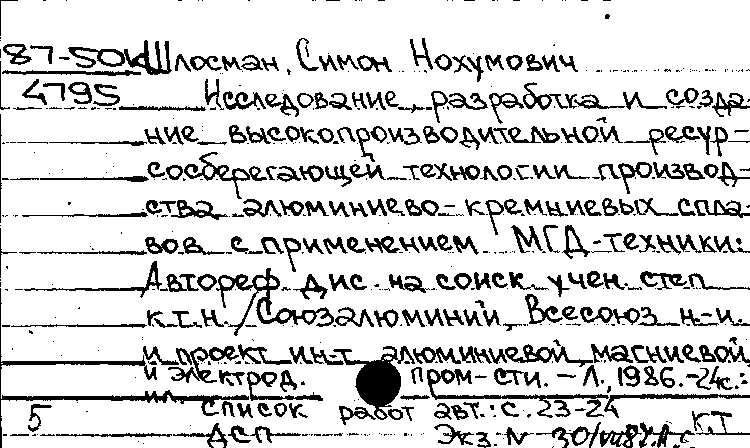 87-50к Шлосман, Симон Нохумович
4795 Исследование, разработка и созда-
ние высокопроизводительной ресур-
сосберегающей технологии производ-
ства алюминиево-кремниевых спла-
вов с применением МГД-техники:
Автореф. дис. на соиск. учен. степ.
к.т.н. /Союзалюминий, Всесоюз. н.-и.
и проект. ин-т алюминиевой, магниевой
и электрод. пром-сти. - Л., 1986. - 24 с.:
ил.
5 Список работ авт.: с. 23-24
ДСП Экз. N К.Т